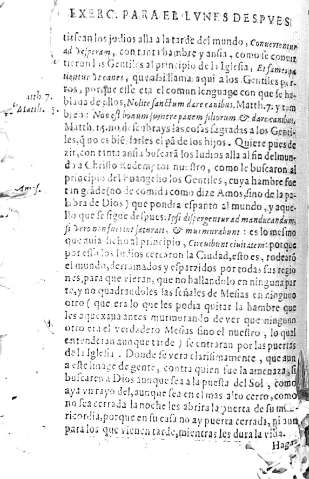 EXERC. PARA EL LVNES DESPVES
tirsean los Iudios alla a la tarde del mundo, Conuertentur
ad Vesperam, con tanta hambre y ansia, como se conuir
tieron los Gentiles al principio de la Iglesia, Et famem pa
tientur vt canes, que a billama aqui a los Gentiles per-
ros, porque esse era el comun lenguage con que se ha
blaua de ellos, Nolite sanctum dare canibus. Matth. 7. y tam
bien: Non est bonum sumere panem filiorum & dare canibus.
Matth. 15. no deis
Matth. 7.
Matth. 15.
las cosas sagradas a los Genti-
les, q̃ no es biẽ, darles el pã de los hijos. Quiere pues de
zir, con tanta ansia buscarà los Iudios alla al fin del mun-
do a Christo Redemptor nuestro, como le buscaron al
principio del Euangelho los Gentiles, cuya hambre fue
Amos.
tan grãde (no de comida como dize Amos, sino de la pa-
labra de Dios) que pondra espanto al mundo, y aque-
llo que se sigue despues. Ipsi dispergentur ad manducandum,
si vero non fuerint saturati, & murmurabunt: es lo mesmo
que auia dicho al principio, Circuibunt ciuitatem: porque
por esso los Iudios cercaron la Ciudad, esto es, rodearõ
el mundo, derramados y esparzidos por todas sus regio
nes, para que vieran, que no hallandolo en ninguna par
te, y no quadrandoles las señales de Mesias en ninguno
otro (que era lo que les podia quitar la hambre que
les aquexaua antes murmurando de ver que ninguno
otro era el verdadero Mesias sino el nuestro, lo qual
entenderian aunque tarde) se entraran por las puertas
de la Iglesia. Donde se vera clarissimamente, que aun
a este linage de gente, contra quien fue la amenaza, si
buscaren a Dios aunque sea a la puesta del Sol, como
aya vn rayo del, aunque sea en el mas alto cerro, como
no sea cerrada la noche les abrira la puerta de su mise-
ricordia, porque en su casa no ay puerta cerrada, ni aun
para los que vienen tarde, mientras les dura la vida.
Hagan